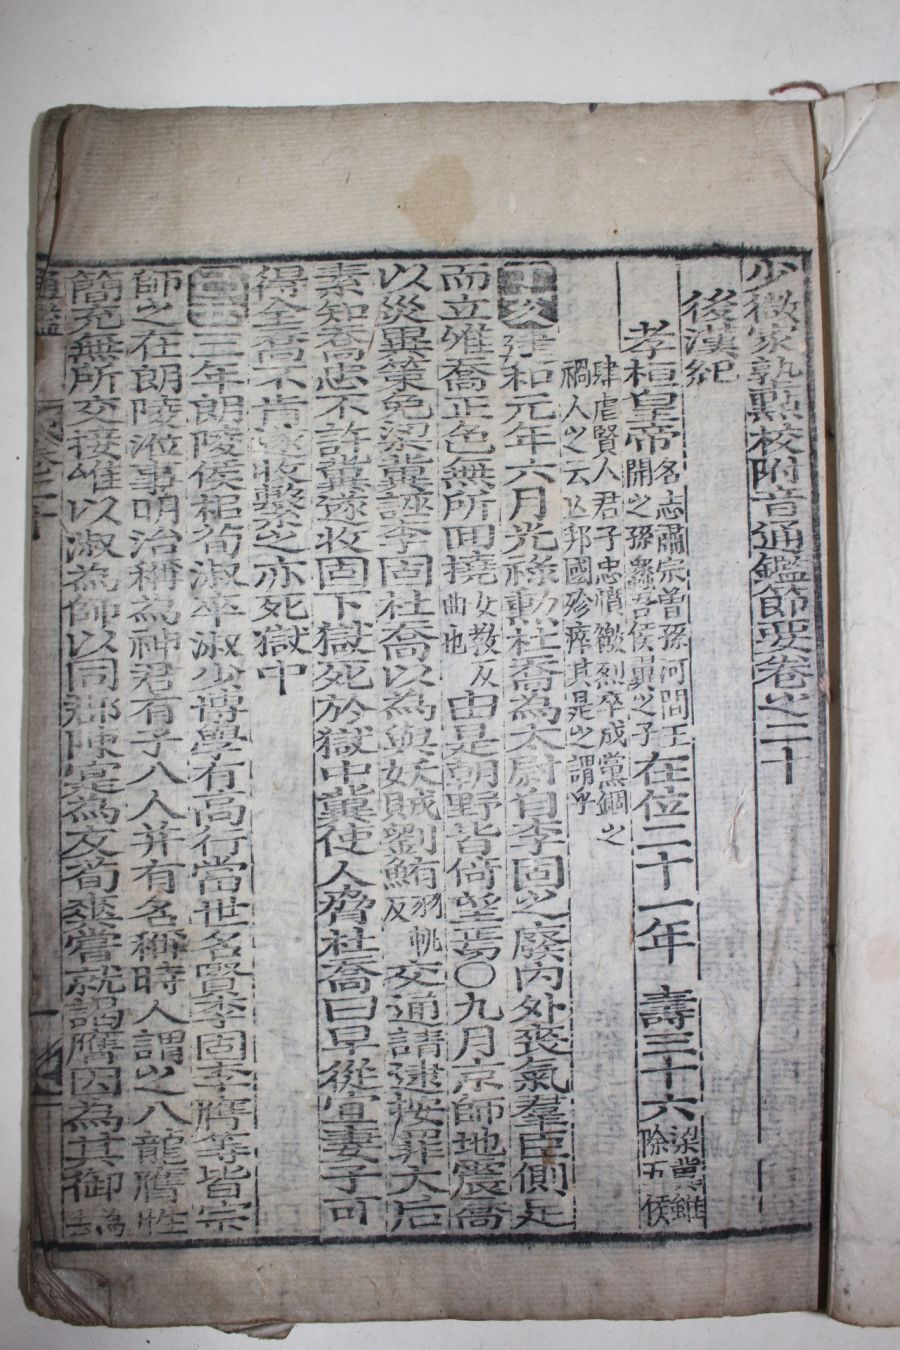 少微家塾點校附音通鑑節要卷之二十
後漢紀
孝桓皇帝名志肅宗曾孫河間王開之孫蠡吾侯翼之子在位二十一年 壽三十六梁冀雖除五侯
肆虐賢人君子忠憤激烈卒成黨錮之禍人之云亡邦國殄瘁其是之謂乎
亥建和元年六月光祿勳杜喬為太尉自李固之廢內外喪氣羣臣側足
而立唯喬正色無所回撓女教反曲也由是朝野皆倚望焉〇九月京師地震喬
以災異策免梁冀誣李固杜喬以為與妖賊劉鮪羽軌反交通請逮按罪太后
素知喬忠不許冀遂收固下獄死於獄中冀使人脅杜喬曰早從宜妻子可
得全喬不肯遂收繫之亦死獄中
三年朗陵侯相荀淑卒淑少博學有高行當世名賢李固李膺等皆宗
師之在朗陵涖事明治稱為神君有子八人并有名稱時人謂之八龍膺性
簡亢無所交接唯以淑為師以同郡陳寔為友荀爽嘗就謁膺因為其御為去
通鑑